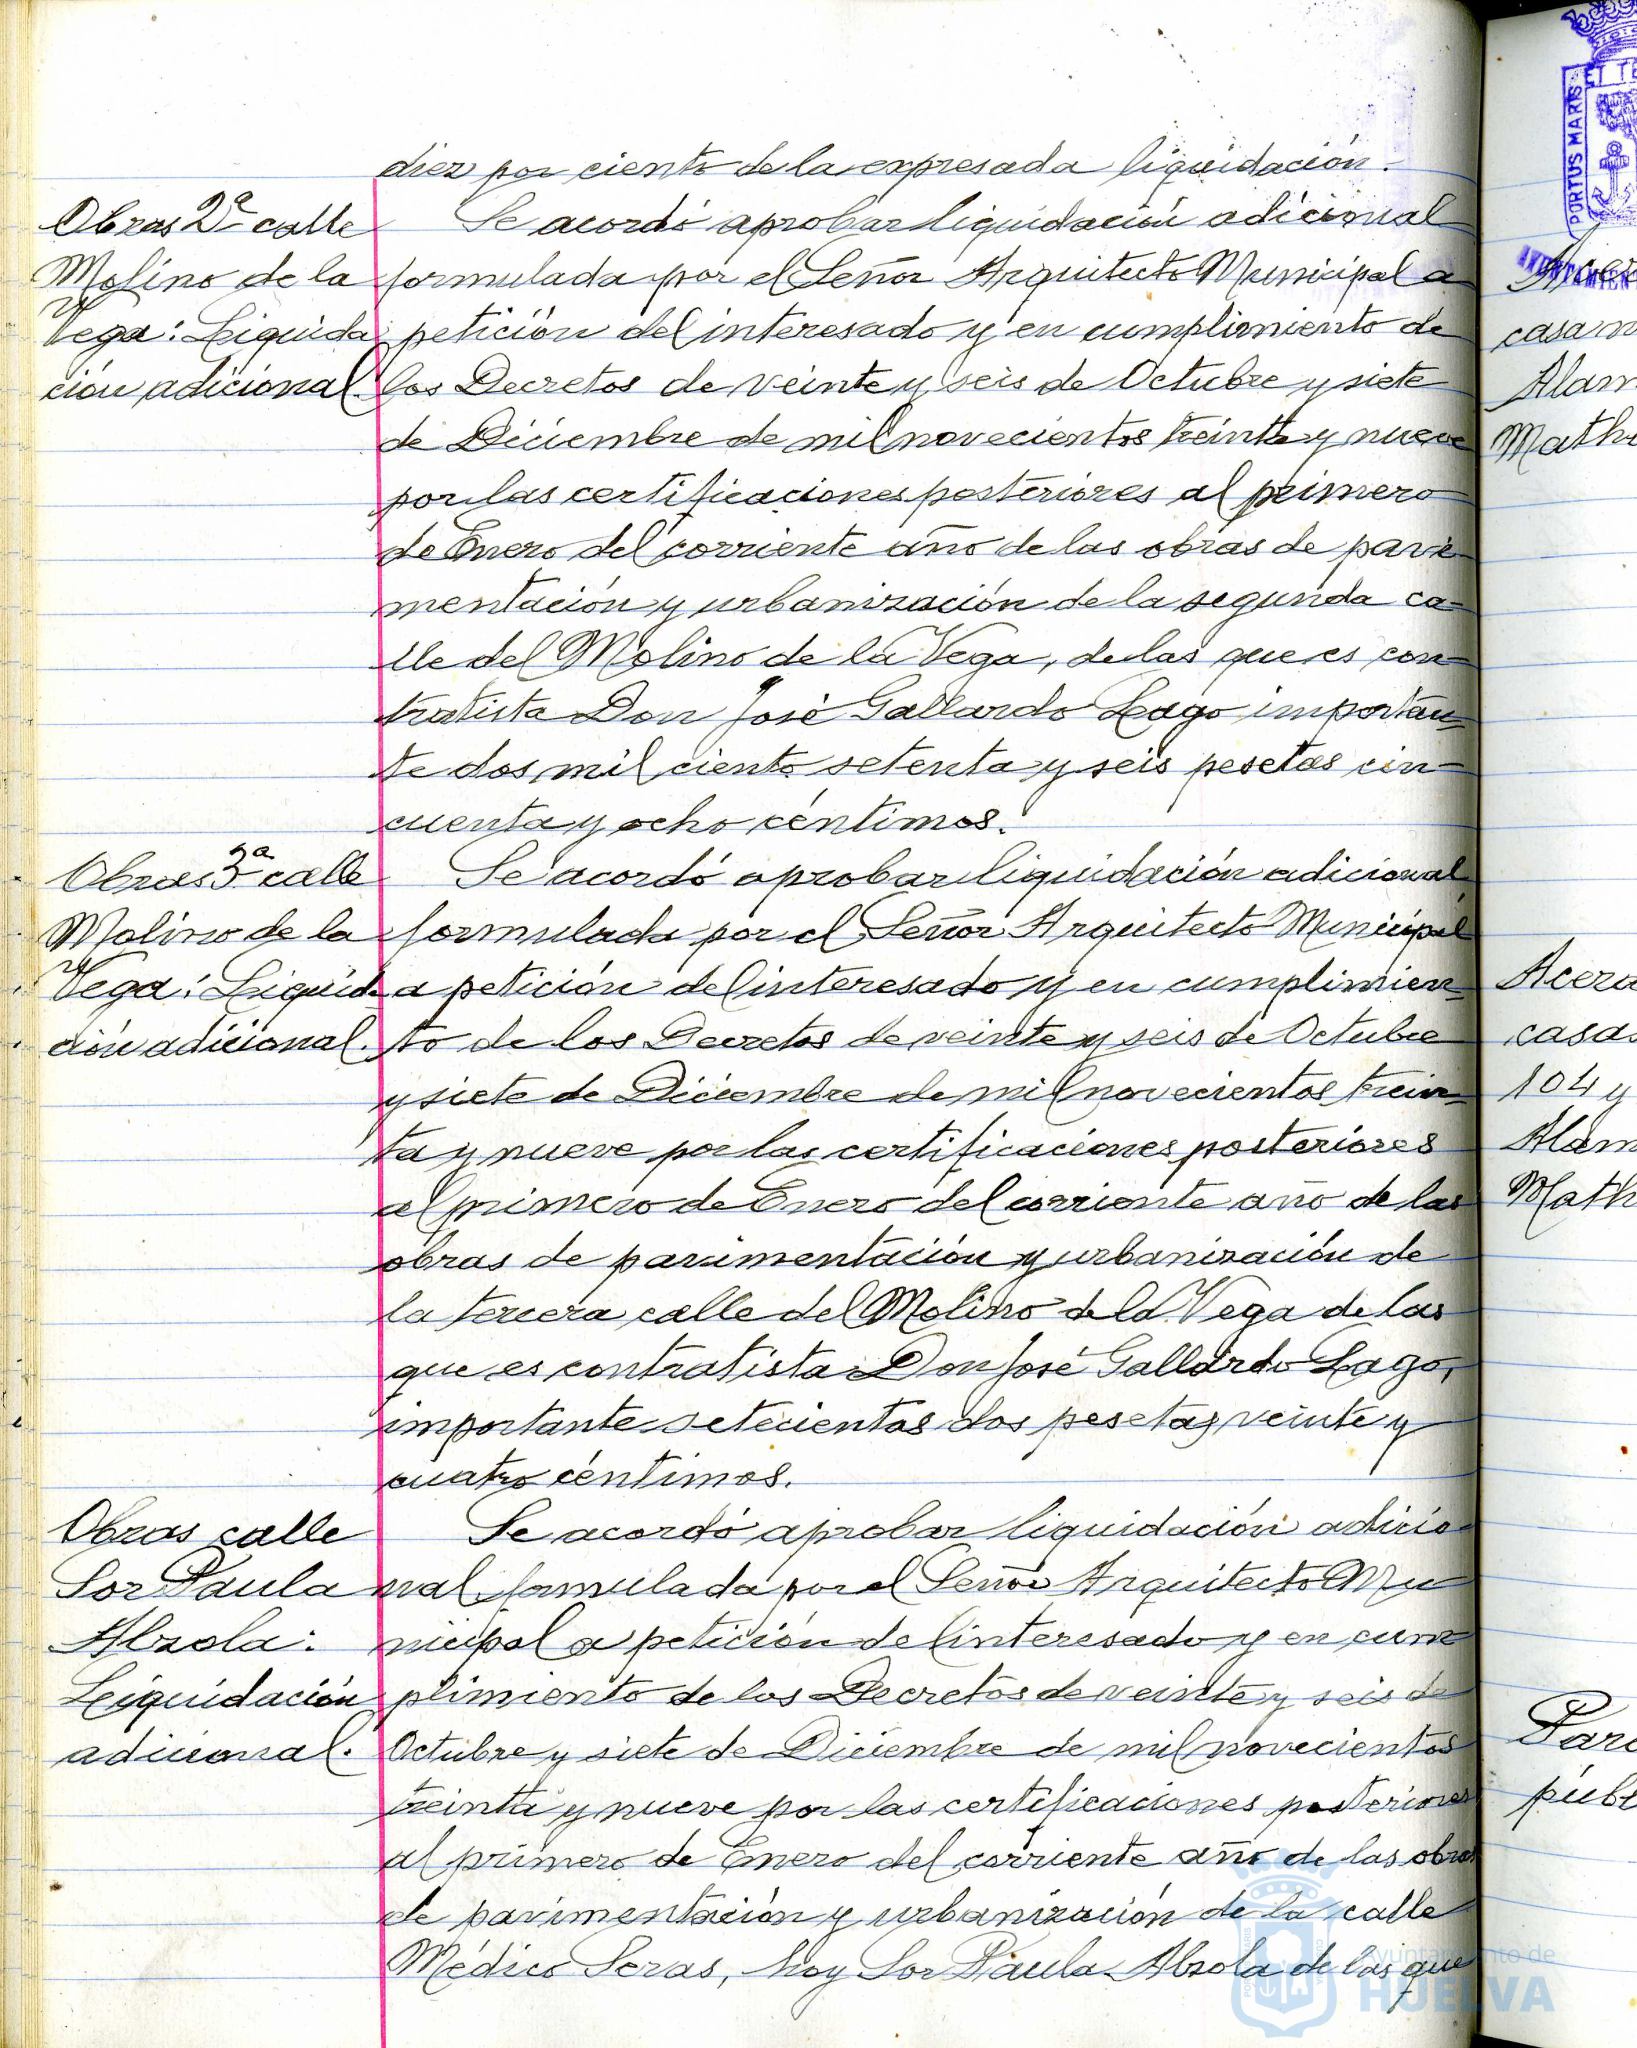 diez por ciento de la expresada liquidación.
Obras 2ª calle
Molino de la
Vega: Liquida
ción adicional.
Se acordó aprobar liquidación adicional
formulada por el Señor Arquitecto Municipal a
petición del interesado y en cumplimiento de
los Decretos de veinte y seis de Octubre y siete
de Diciembre de mil novecientos treinta y nueve
por las certificaciones posteriores al primero
de Enero del corriente año de las obras de pavi
mentación y urbanización de la segunda ca-
lle del Molino de la Vega, de las que es con-
tratista Don José Gallardo Lago importan-
te dos mil ciento setenta y seis pesetas cin-
cuenta y ocho céntimos.
Obras 3ª calle
Molino de la
Vega: Liquida
ción adicional.
Se acordó aprobar liquidación adicional
formulada por el Señor Arquitecto Municipal
a petición del interesado y en cumplimien-
to de los Decretos de veinte y seis de Octubre
y siete de Diciembre de mil novecientos trein-
ta y nueve por las certificaciones posteriores
al primero de Enero del corriente año de las
obras de pavimentación y urbanización de
la tercera calle del Molino de la Vega de las
que es contratista Don José Gallardo Lago,
importante setecientas dos pesetas veinte y
cuatro céntimos.
Obras calle
Sor Paula
Alzola:
Liquidación
adicional.
Se acordó aprobar liquidación adicio-
nal formulada por el Señor Arquitecto Mu
nicipal a petición del interesado y en cum
plimiento de los Decretos de veinte y seis de
Octubre y siete de Diciembre de mil novecientos
treinta y nueve por las certificaciones posteriores
al primero de Enero del corriente año de las obras
de pavimentación y urbanización de la calle
Médico Seras, hoy Sor Paula Alzola de las que
PORTUS MARIS ET TE
casa n
Alam
Math
Acera
casas
104 y
Alam
Math
Par
públ
Ayuntamiento de
HUELVA